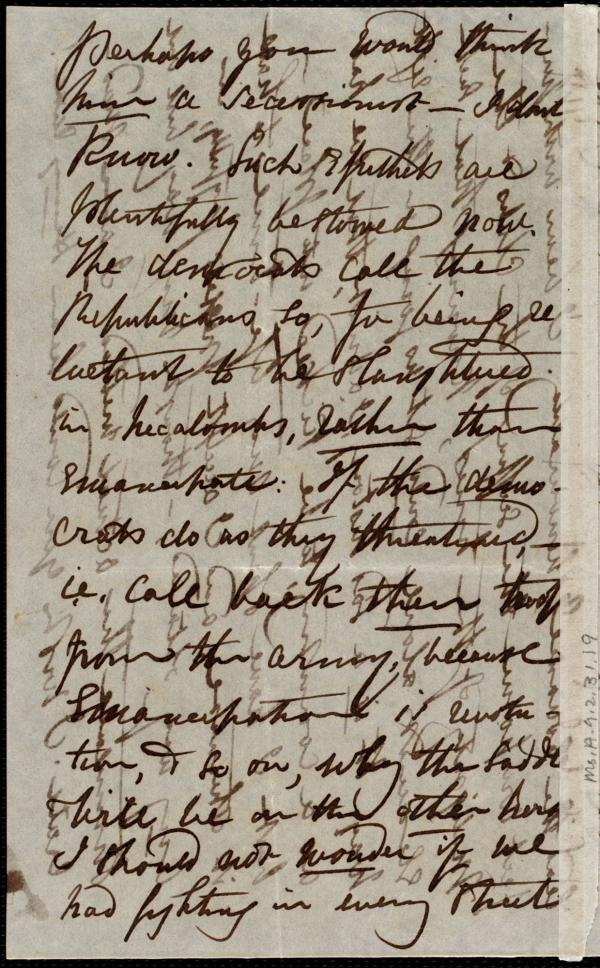 Perhaps you would think
him a secessionist — I dont
know. Such Epithets are
plentifully bestowed now.
The democrats call the
Republicans so, for being re
luctant to be slaughtered
in hecatombs, rather than
Emancipate. If the demo-
crats do as they threatened, —
i.e. call back their troops
from the army, because
Emancipation is revolu-
tion, & so on, why the saddle
will be on the other horse
I should not wonder if we
had fighting in every street
Ms. A. 9. 2. 31. 19